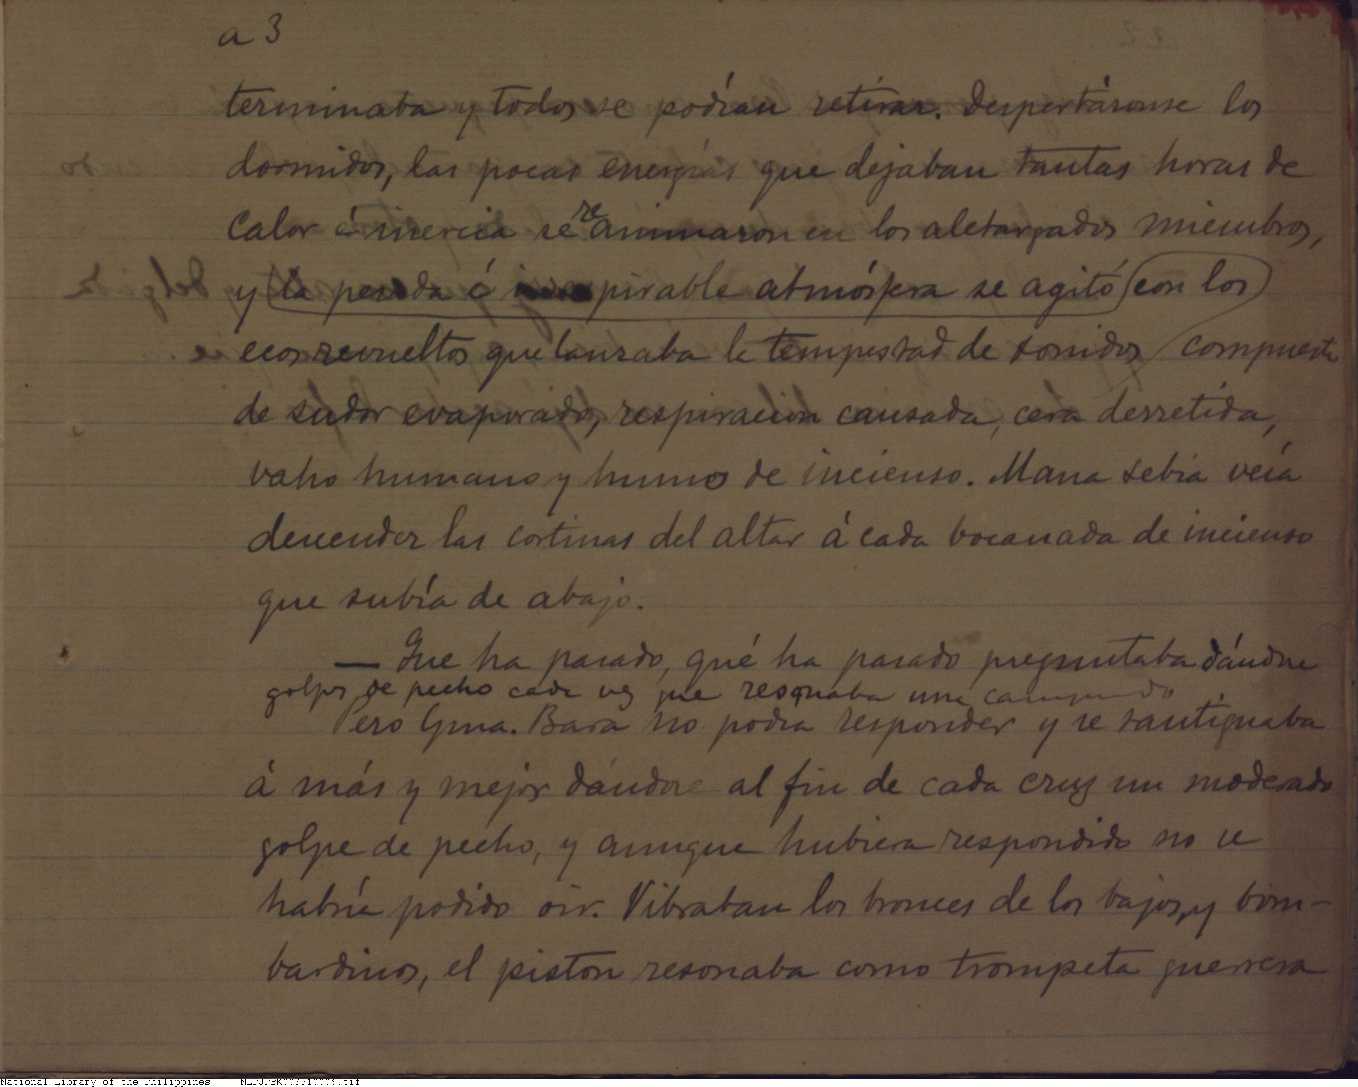 a 3
terminaba y todos se podían retirar. Despertáronse los
dormidos, las pocas energías que dejaban tantas horas de
calor é inercia se reanimaron en los aletargados miembros,
y la pesada é irrespirable atmósfera se agitó con los
ecos revueltos que lanzaba la tempestad de sonidos compuesta
de sudor evaporado, respiracion cansada, cera derretida,
vaho humano y humo de incienso. Mana Sebia veía
decender las cortinas del altar á cada bocanada de incienso
que subía de abajo.
— Que ha pasado, qué ha pasado preguntaba dándose
golpes de pecho cada vez que resonaba una
Pero Gma. Bara no podia responder y se santiguaba
á más y mejor dándose al fin de cada cruz un moderado
golpe de pecho, y aunque hubiera respondido no se
habría podido oir. Vibraban los bronces de los bajos, y bom-
bardinos, el piston resonaba como trompeta guerrera
National Library of the Philippines